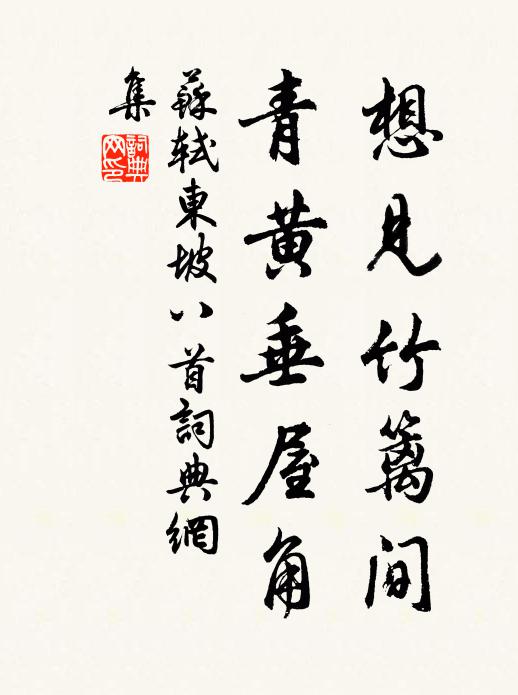 想見竹籬間
青黃垂屋角
蘇軾東坡八首詞典網
集
詞典
网印